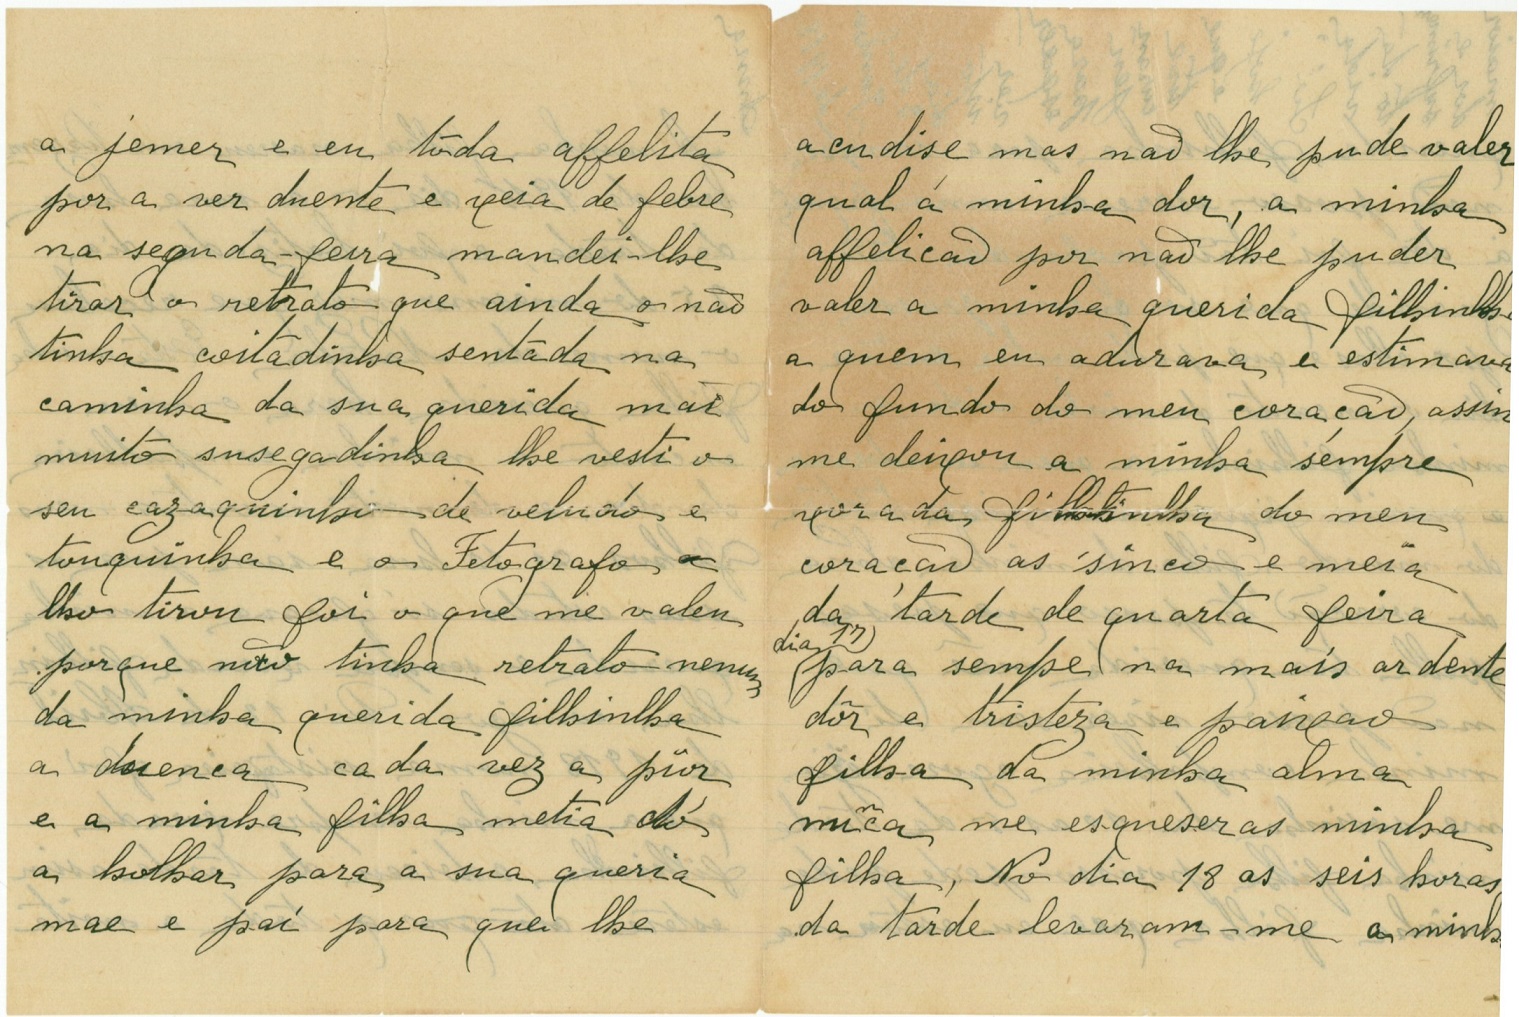 a jemer e eu tôda affelita
por a ver duente e xeia de febre
na segunda-feira mandei-lhe
tirar o retrato que ainda o não
tinha coitadinha sentada na
caminha da sua querida mãi
muito susegadinha lhe vesti o
seu cazaquinho de veludo e
touquinha e o Fotografo
lho tirou foi o que me valeu
porque não tinha retrato nenum
da minha querida filhinlha
a duenca cada vez a piior
e a minha filha metia dó
a holhar para a sua queria
mae e paí para que lhe
acudise mas não lhe pude valer
qual á minha dor, a minha
affelicão por não lhe puder
valer a minha querida filhinlha
a quem eu adurava e estimava
do fundo do meu coracão, assim
me deixou a minha sémpre
xorada filhinlha do meu
coracão as sinco e meia
da tarde de quarta feira
dia 17)
(para sempe na maís ardente
dôr e tristeza e paixao
filha da minha alma
nuñca me esqueseras minha
filha, No dia 18 as seis horas
da tarde levaram-me a minh